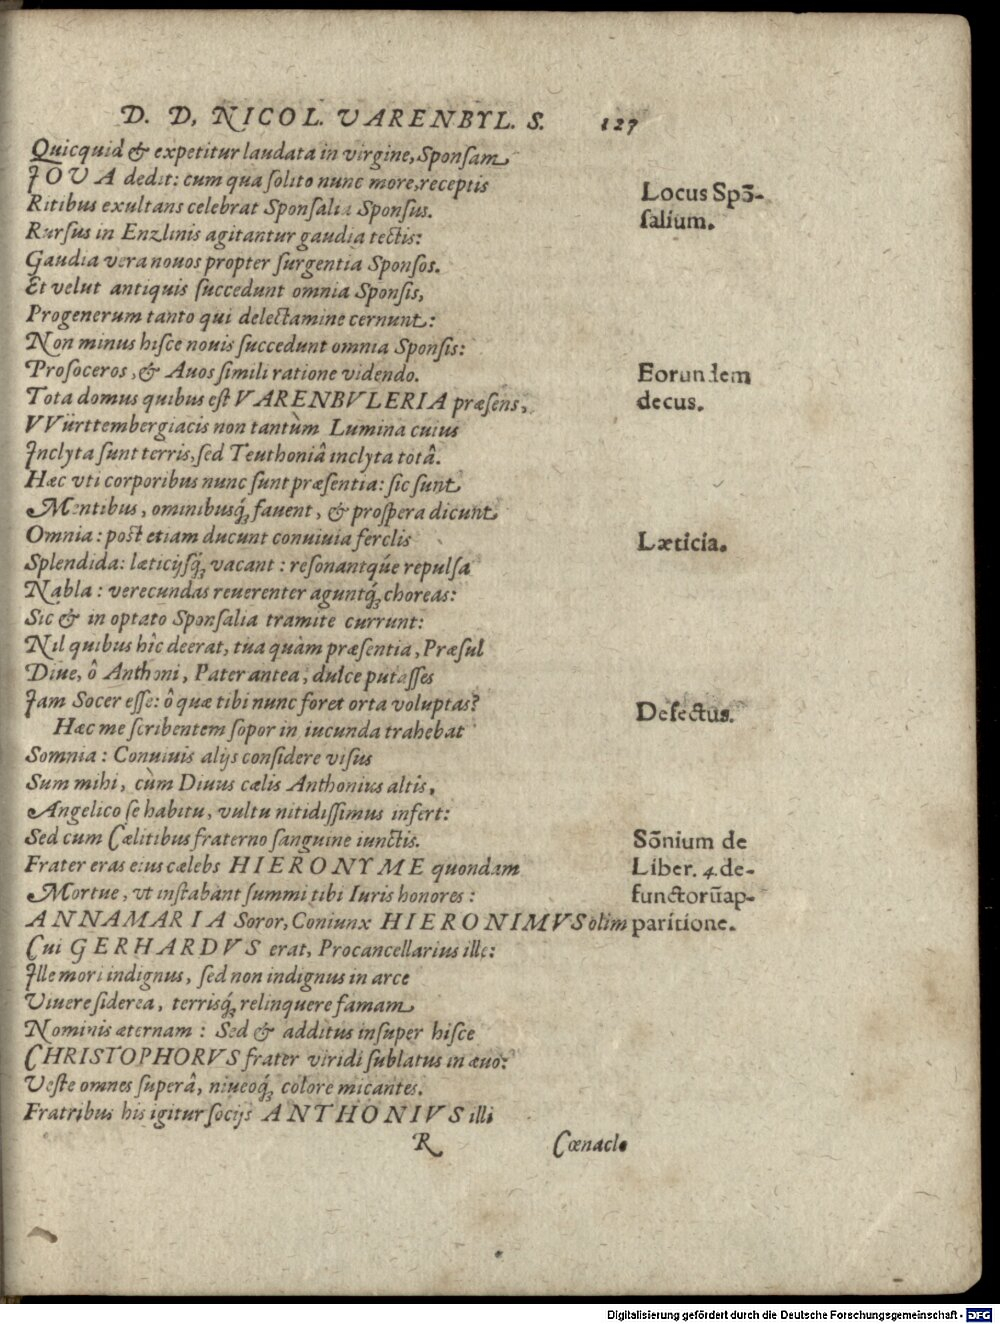 D. D, NICOL. VARENBYL. S. 127
Quicquid & expetitur laudata in virgine, Sponsam
JOVA dedit: cum qua solito nunc more, receptis
Locus Spō-
Ritibus exultans celebrat Sponsalia Sponsus.
salium.
Rursus in Enzlinis agitantur gaudia tectis:
Gaudia vera nouos propter surgentia Sponsos.
Et velut antiquis succedunt omnia Sponsis,
Progenerum tanto qui delectamine cernunt:
Non minus hisce nouis succedunt omnia Sponsis:
Prosoceros, & Auos simili ratione videndo.
Eorundem
Tota domus quibus est VARENBVLERIA præsens,
decus.
VVürttembergiacis non tantùm Lumina cuius
Jnclyta sunt terris, sed Teuthoniâ inclyta totâ.
Hæc vti corporibus nunc sunt præsentia: sic sunt
Mentibus, ominibusq́; fauent, & prospera dicunt
Omnia: post etiam ducunt conuiuia ferclis
Læticia.
Splendida: læticijsq́; vacant: resonantqúe repulsa
Nabla: verecundas reuerenter aguntq́; choreas:
Sic & in optato Sponsalia tramite currunt:
Nil quibus hîc deerat, tua quàm præsentia, Præsul
Diue, ô Anthoni, Pater antea, dulce putasses
Jam Socer esse: ô quæ tibi nunc foret orta voluptas?
Defectus.
Hæc me scribentem sopor in iucunda trahebat
Somnia: Conuiuis alijs considere visus
Sum mihi, cùm Diuus cælis Anthonius altis,
Angelico se habitu, vultu nitidissimus infert:
Sed cum Cælitibus fraterno sanguine iunctis.
Sōnium de
Frater eras eius cælebs HIERONYME quondam
Liber. 4. de-
Mortue, vt instabant summi tibi Iuris honores:
functorūap-
ANNAMARIA Soror, Coniunx HIERONIMVS olim
paritione.
Cui GERHARDVS erat, Procancellarius ille:
Jlle mori indignus, sed non indignus in arce
Viuere siderea, terrisq́; relinquere famam
Nominis æternam: Sed & additus insuper hisce
CHRISTOPHORVS frater viridi sublatus in æuo:
Veste omnes superâ, niueoq́; colore micantes.
Fratribus his igitur socijs ANTHONIVS illi
R Cœnaclo
Digitalisierung gefördert durch die Deutsche Forschungsgemeinschaft - DFG